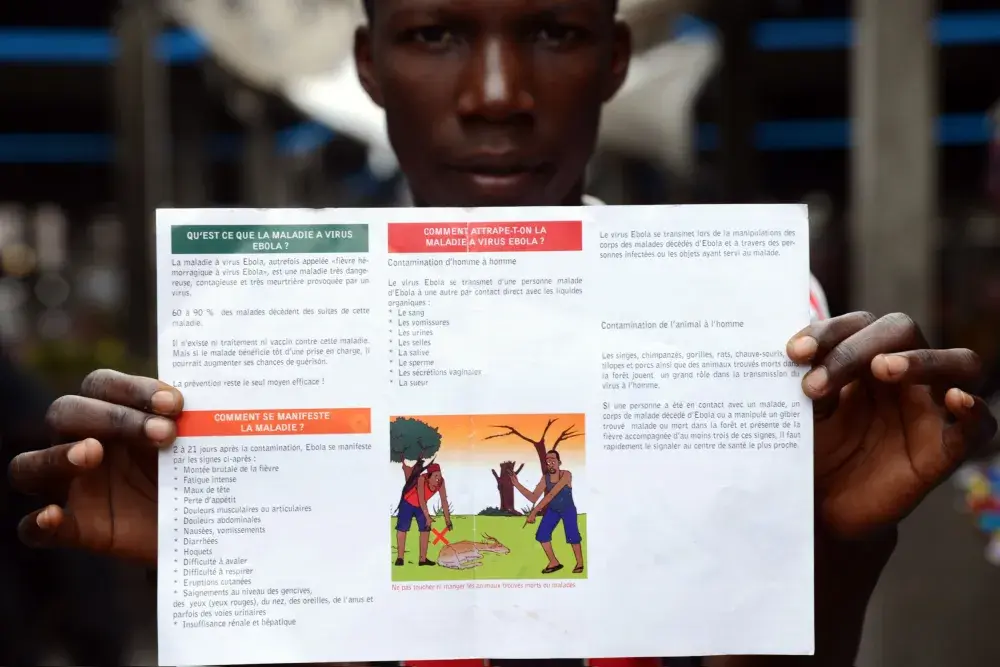 QU'EST CE QUE LA MALADIE A VIRUS
EBOLA ?
La maladie à virus Ebola, autrefois appelée «fièvre hé-
morragique à virus Ebola», est une maladie très dange-
reuse, contagieuse et très meurtrière provoquée par un
virus.
60 à 90 % des malades décèdent des suites de cette
maladie.
Il n'existe ni traitement ni vaccin contre cette maladie.
Mais si le malade bénéficie tôt d'une prise en charge, il
pourrait augmenter ses chances de guérison.
La prévention reste le seul moyen efficace !
COMMENT SE MANIFESTE
LA MALADIE ?
2 à 21 jours après la contamination, Ebola se manifeste
par les signes ci-après :
* Montée brutale de la fièvre
* Fatigue intense
* Maux de tête
* Perte d'appétit
* Douleurs musculaires ou articulaires
* Douleurs abdominales
* Nausées, vomissements
* Diarrhées
* Hoquets
* Difficulté à avaler
* Difficulté à respirer
* Eruptions cutanées
* Saignements au niveau des gencives,
des yeux (yeux rouges), du nez, des oreilles, de l'anus et
parfois des voies urinaires
* Insuffisance rénale et hépatique
COMMENT ATTRAPE-T-ON LA
MALADIE A VIRUS EBOLA ?
Contamination d'homme à homme
Le virus Ebola se transmet d'une personne malade
d'Ebola à une autre par contact direct avec les liquides
organiques :
* Le sang
* Les vomissures
* Les urines
* Les selles
* La salive
* Le sperme
* Les sécrétions vaginales
* La sueur
Ne pas toucher ni manger les animaux trouvés morts ou malades
Le virus Ebola se transmet lors de la manipulations des
corps des malades décédés d'Ebola et à travers des per-
sonnes infectées ou les objets ayant servi au malade.
Contamination de l'animal à l'homme
Les singes, chimpanzés, gorilles, rats, chauve-souris,
tilopes et porcs ainsi que des animaux trouvés morts dans
la forêt jouent un grand rôle dans la transmission du
virus à l'homme.
Si une personne a été en contact avec un malade, un
corps de malade décédé d'Ebola ou a manipulé un gibier
trouvé malade ou mort dans la forêt et présente de la
fièvre accompagnée d'au moins trois de ces signes, il faut
rapidement le signaler au centre de santé le plus proche.